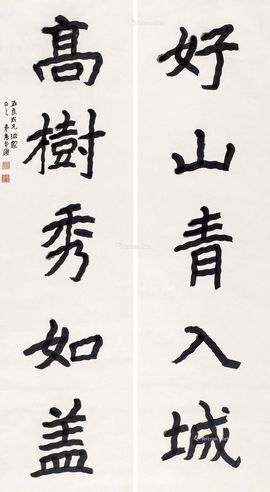 好山青入城
高樹秀如盖